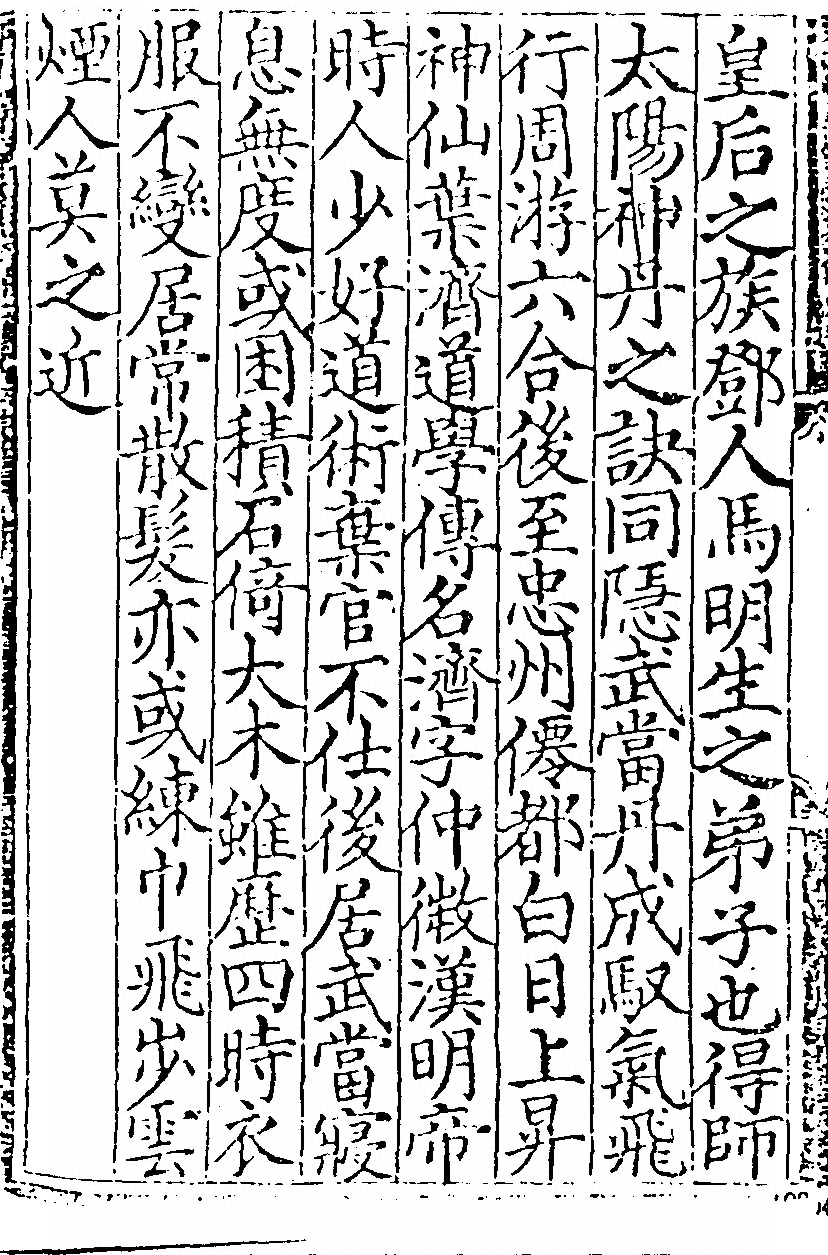 皇后之族鄧人馬明生之弟子也得師
太陽神丹之訣同隱武當丹成馭氣飛
行周游六合後至忠州僊都白日上昇
神仙葉濟道學傳名濟字仲微漢明帝
時人少好道術棄官不仕後居武當寢
息無度或困積石倚大木雖歷四時衣
服不變居常散髮亦或練巾飛步雲
煙人莫之近